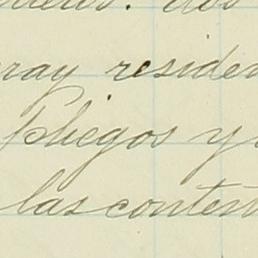 dos
ray residen
pliegos y
las conten